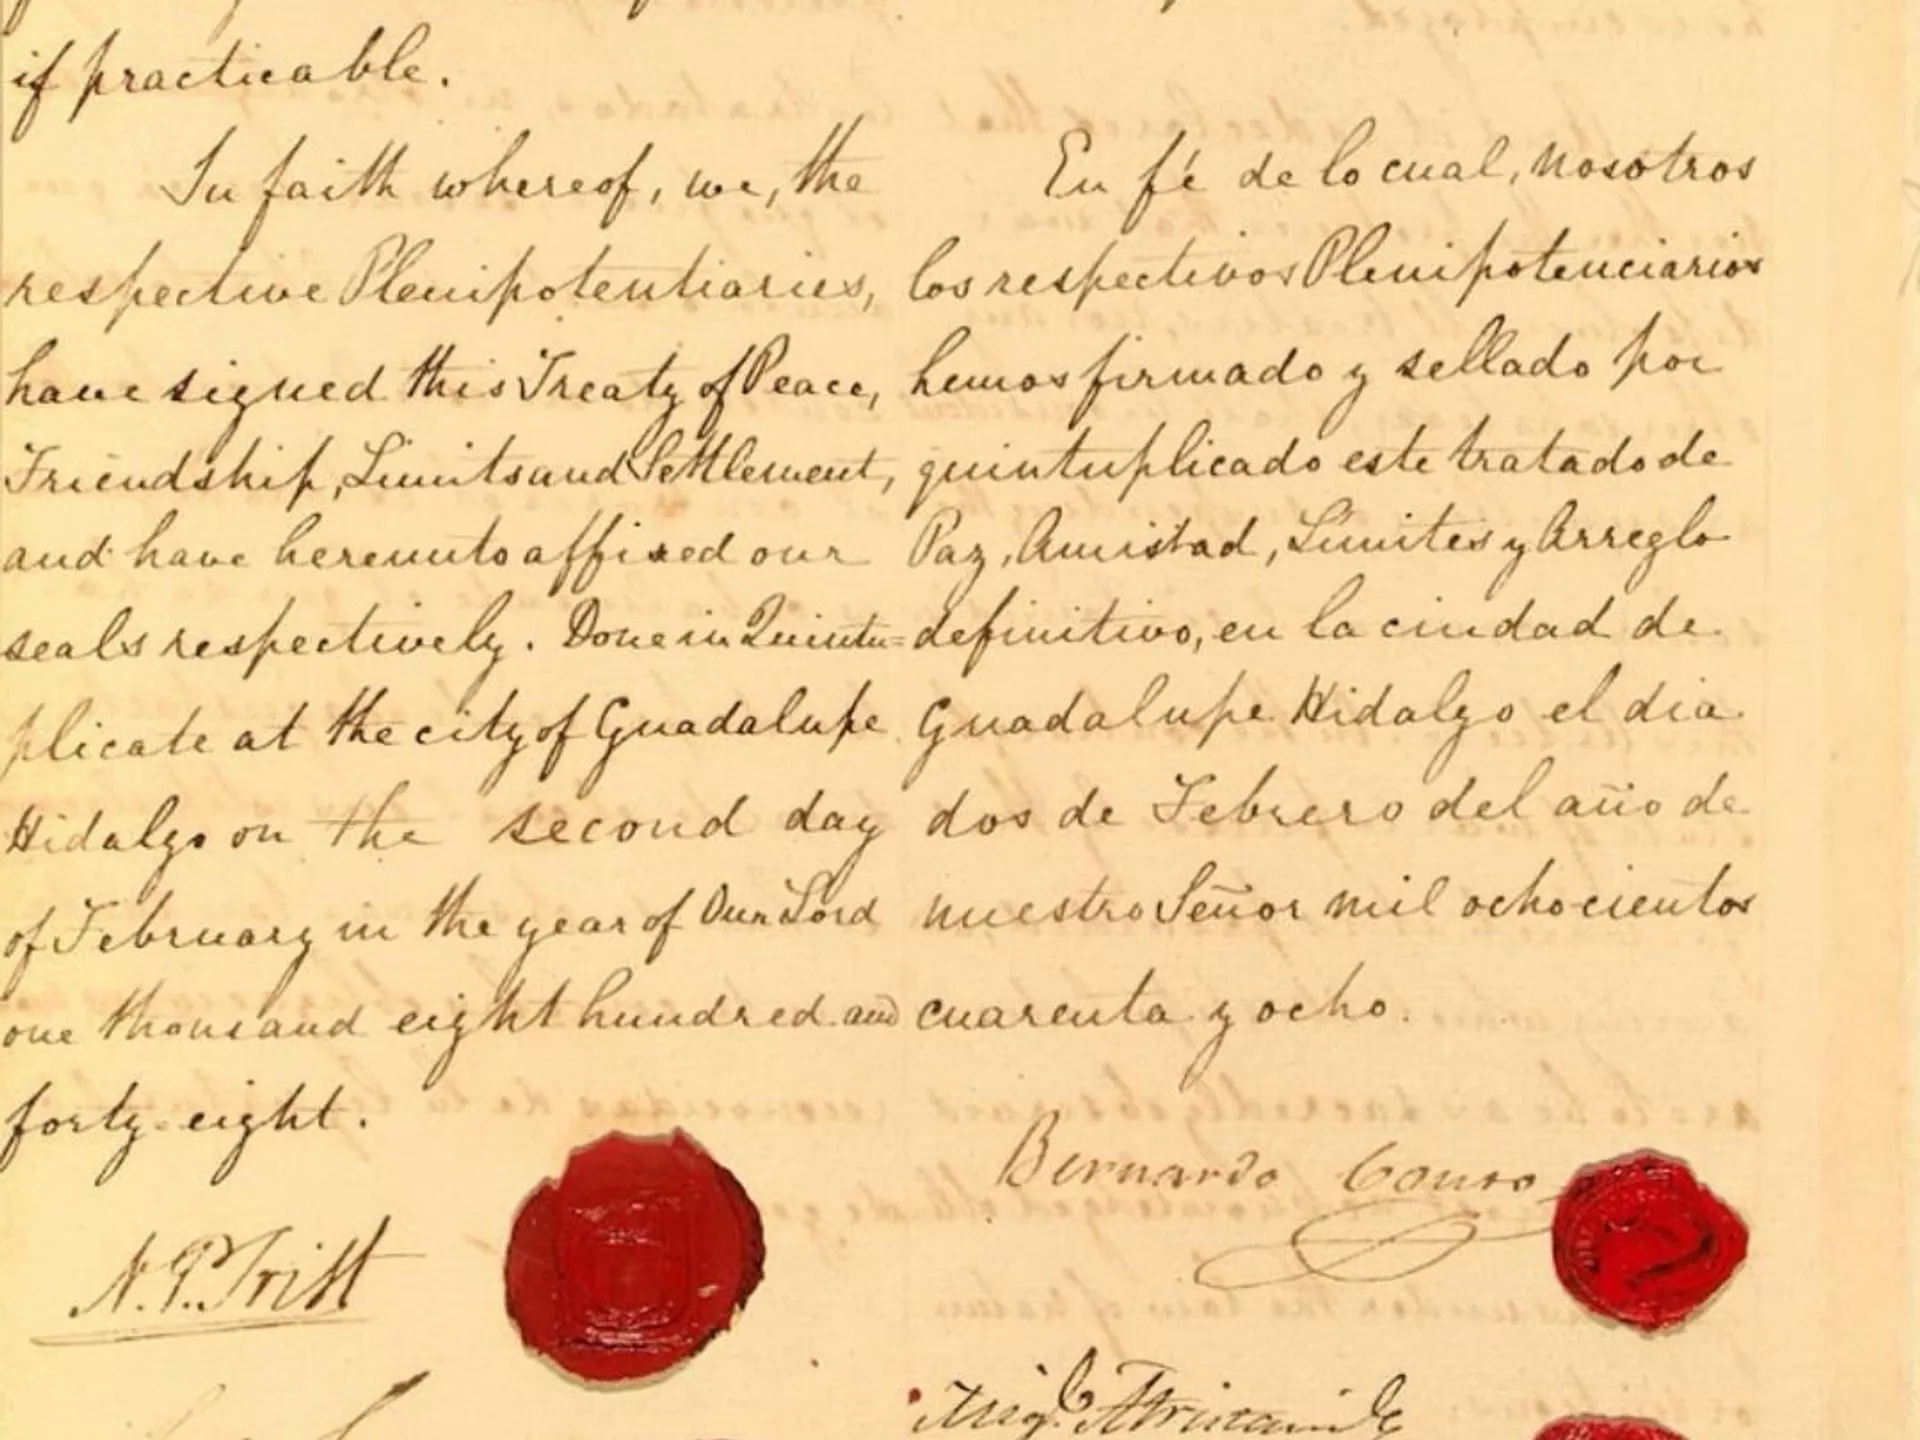 if practicable.
In faith whereof, we, the
respective Plenipotentiaries,
have signed this Treaty of Peace,
Friendship, Limits and Settlement,
and have hereunto affixed our
seals respectively. Done in Quintu=
plicate at the city of Guadalupe
Hidalgo on the second day
of February in the year of Our Lord
one thousand eight hundred and
forty-eight.
N. P. Trist
En fé de lo cual, nosotros
los respectivos Plenipotenciarios
hemos firmado y sellado por
quintuplicado este tratado de
Paz, Amistad, Límites y Arreglo
definitivo, en la ciudad de
Guadalupe Hidalgo el dia
dos de Febrero del año de
nuestro Señor mil ochocientos
cuarenta y ocho.
Bernardo Couto
Migl. Atristain